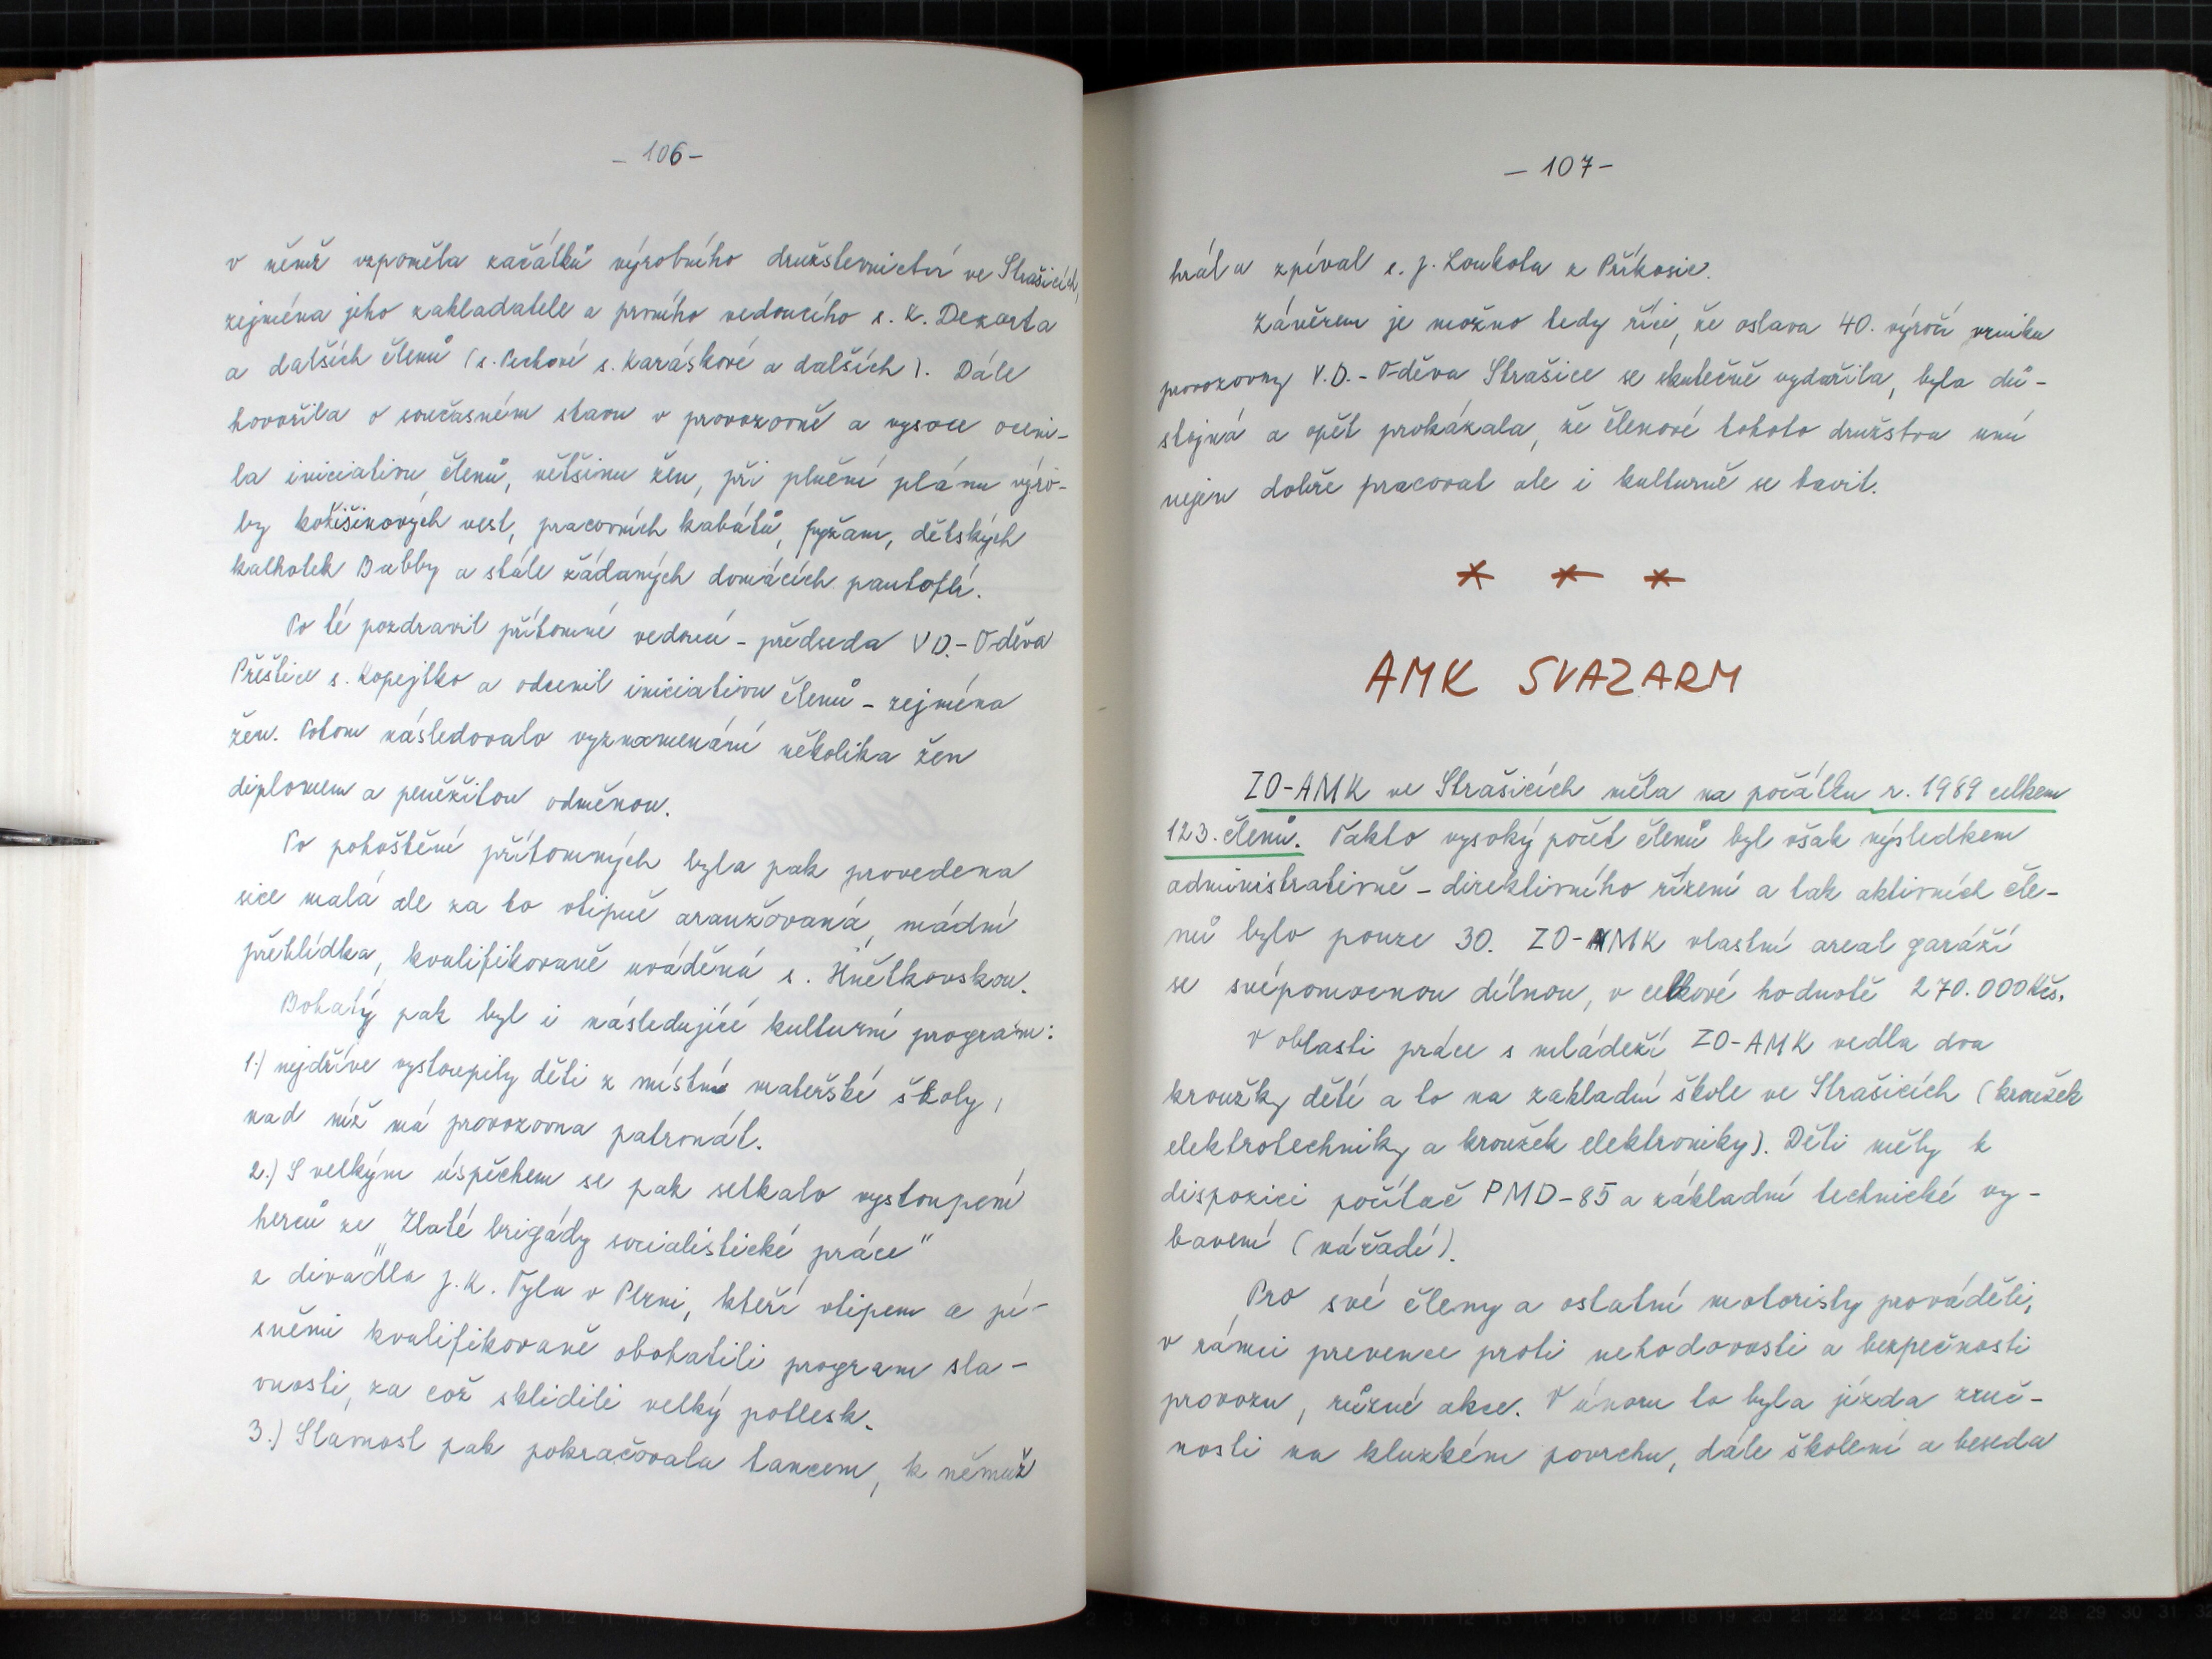 - 106 -
v němž vzpoměla začátků výrobního družstevnictví ve Strašicích,
zejména jeho zakladatele a prvního vedoucího s. K. Dezorta
a dalších členů (s. Peckové s. Karáskové a dalších). Dále
hovořila o současném stavu v provozovně a vysoce oceni-
la iniciativu členů, většinu žen, při plnění plánu výro-
by kožišinových vest, pracovních kabátů, pyžam, dětských
kalhotek Babby a stále žádaných domácích pantoflí.
Po té pozdravil přítomné vedoucí - předseda VD.- Oděva
Přeštice s. Kopejtko a odcenil iniciativu členů - zejména
žen. Potom následovalo vyznamenání několika žen
diplomem a peněžitou odměnou.
Po pohoštění přítomných byla pak provedena
sice malá ale za to vtipně aranžovaná, módní
přehlídka, kvalifikovaně uváděná s. Hnětkovskou.
Bohatý pak byl i následující kulturní program:
1.) nejdříve vystoupily děti z místní mateřské školy,
nad níž má provozovna patronát.
2.) S velkým úspěchem se pak setkalo vystoupení
herců ze "Zlaté brigády socialistické práce"
z divadla J. K. Tyla v Plzni, kteří vtipem a pí-
sněmi kvalifikovaně obohatili program sla-
vnosti, za což sklidili velký potlesk.
3.) Slavnost pak pokračovala tancem, k němuž
- 107 -
hrál a zpíval s. J. Loukota z Příkosic.
Závěrem je možno tedy říci, že oslava 40. výročí vzniku
provozovny V.D.- Oděva Strašice se skutečně vydařila, byla dů-
stojná a opět prokázala, že členové tohoto družstva umí
nejen dobře pracovat ale i kulturně se bavit.
* * *
AMK SVAZARM
ZO-AMK ve Strašicích měla na počátku r. 1989 celkem
123. členů. Takto vysoký počet členů byl však výsledkem
administrativně - direktivního řízení a tak aktivních čle-
nů bylo pouze 30. ZO-AMK vlastní areal garáží
se svépomocnou dílnou, v celkové hodnotě 270.000 Kčs.
V oblasti práce s mládeží ZO-AMK vedla dva
kroužky dětí a to na zakladní škole ve Strašicích (kroužek
elektrotechniky a kroužek elektroniky). Děti měly k
dispozici počítač PMD-85 a základní technické vy-
bavení (nářadí).
Pro své členy a ostatní motoristy prováděli,
v rámci prevence proti nehodovosti a bezpečnosti
provozu, různé akce. V únoru to byla jízda zruč-
nosti na kluzkém povrchu, dále školení a beseda